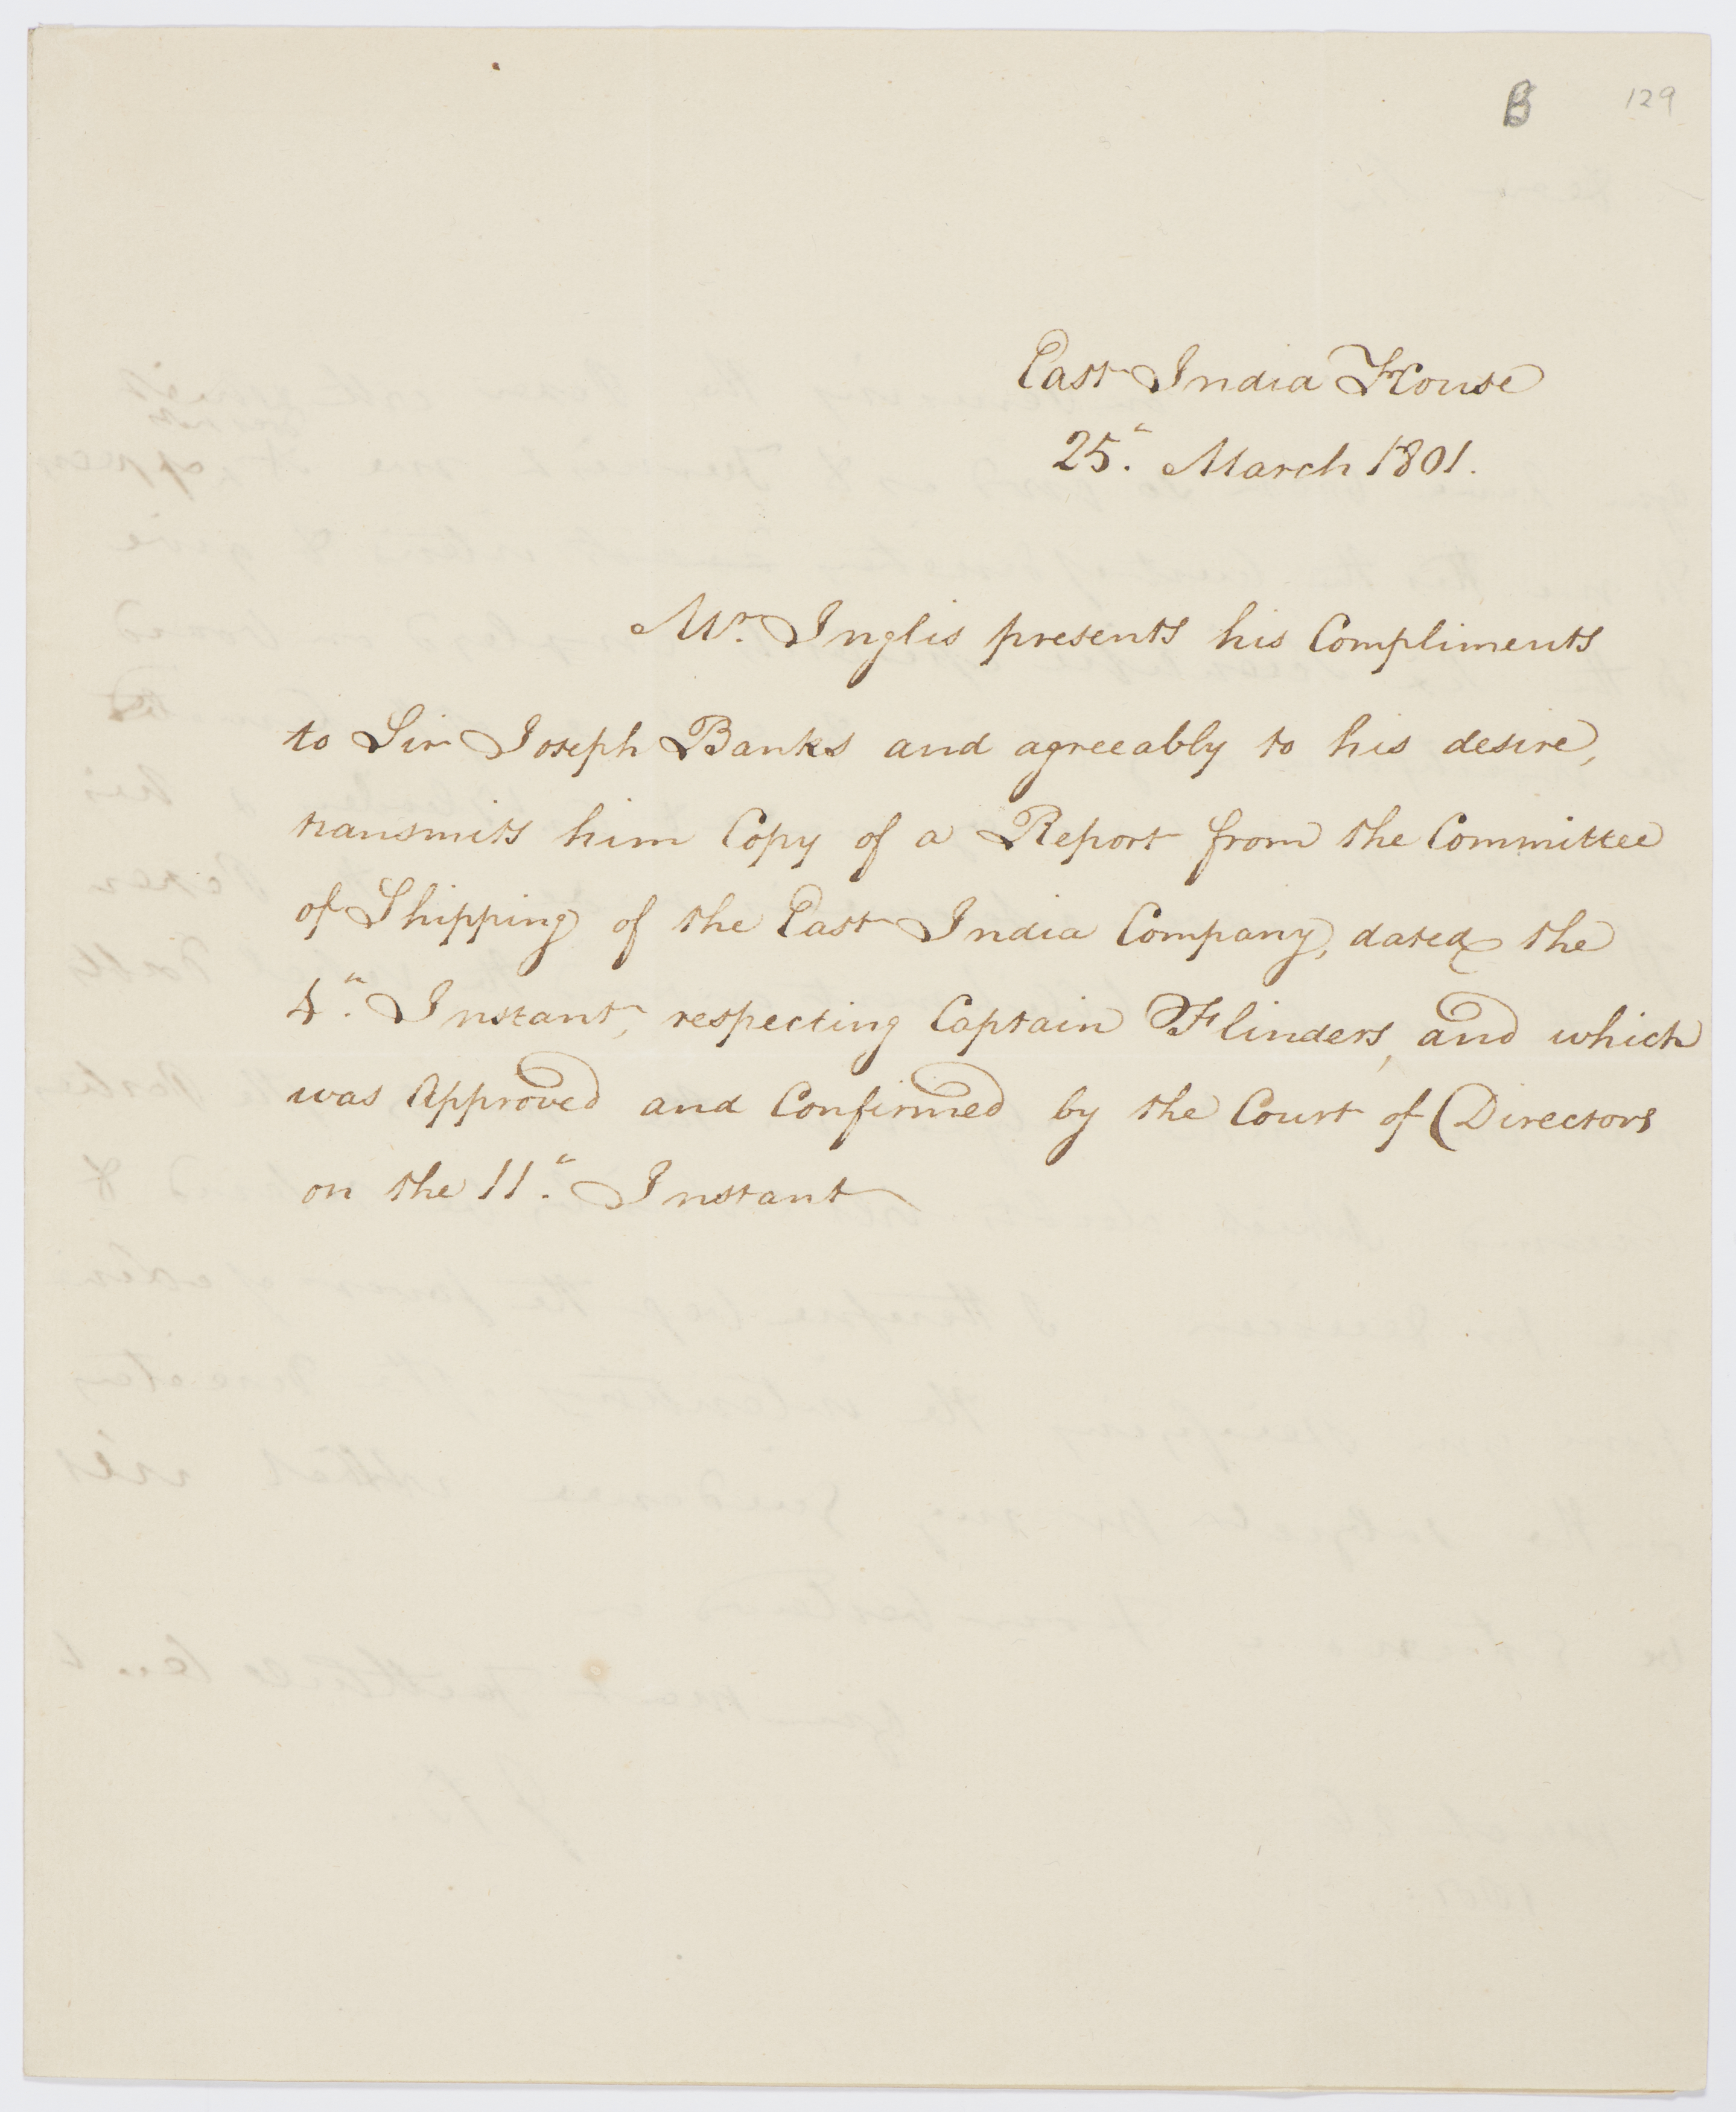 B 129
East India House
25." March 1801.
Mr. Inglis presents his Compliments
to Sir Joseph Banks and agreeably to his desire,
transmits him Copy of a Report from the Committee
of Shipping of the East India Company, dated the
4." Instant, respecting Captain Flinders, and which
was Approved and Confirmed by the Court of Directors
on the 11." Instant